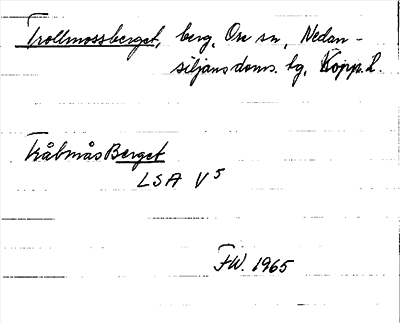 Trollmossberget, berg, Ore sn, Nedan-
siljans doms. tg, Kopp. L.
TråbmåsBerget
LSA V5
FW. 1965